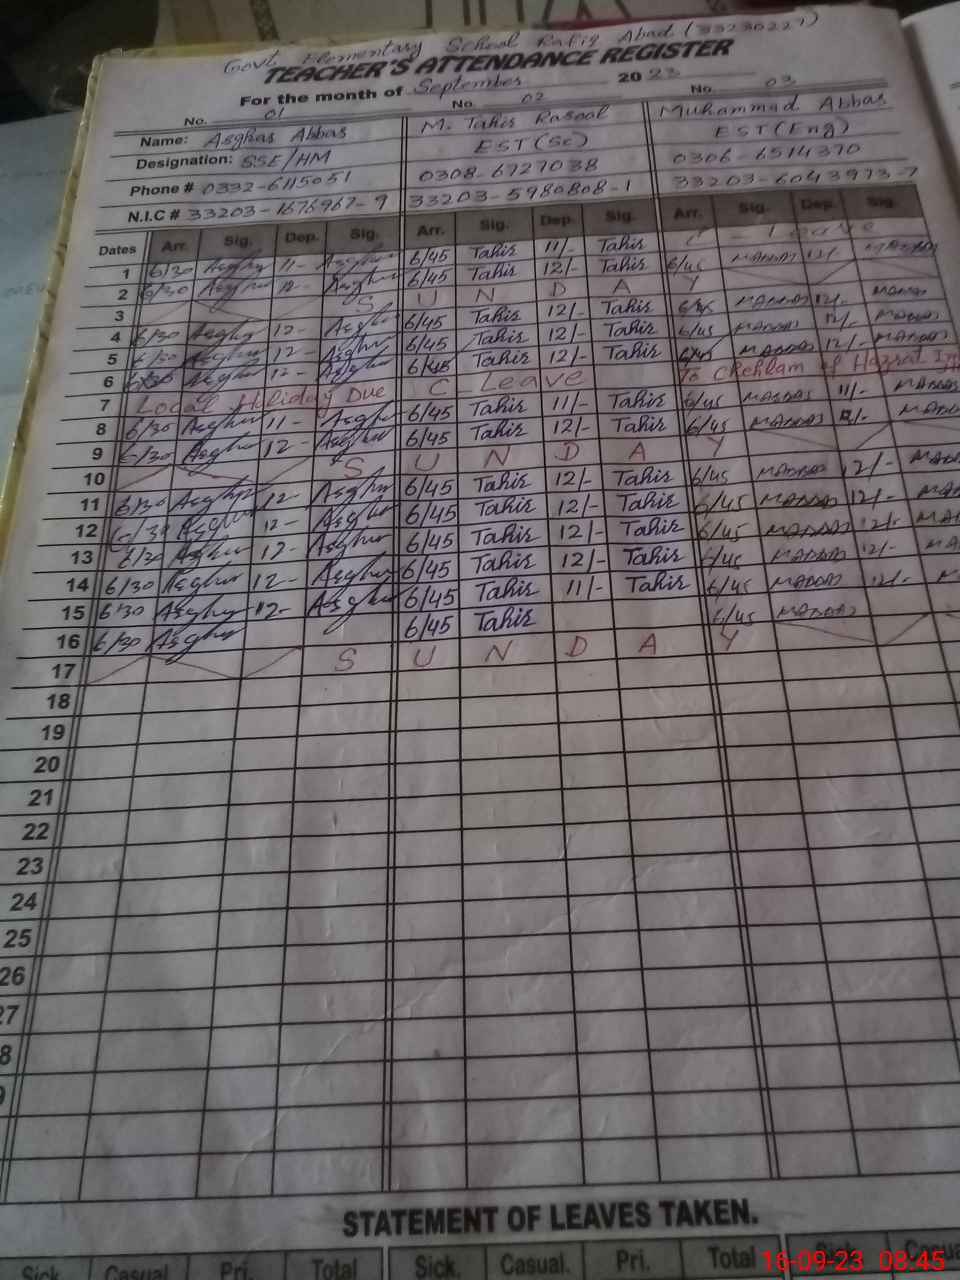 Govt. Elementary School Rafiq Abad (33230227)
TEACHER'S ATTENDANCE REGISTER
For the month of September 2023
No. 01 No. 02 No. 03
Name: Asghar Abbas M. Tahir Rasool Muhammad Abbas
Designation: SSE/HM EST(Sc) EST(Eng)
Phone # 0332-6115051 0308-6727038 0306-6514370
N.I.C # 33203-1676967-9 33203-5980808-1 33203-6043973-7
Dates Arr. Sig. Dep. Sig. Arr. Sig. Dep. Sig. Arr. Sig. Dep. Sig.
1 6/30 Asghar 11- Asghar 6/45 Tahir 11/- Tahir C - Leave
2 6/30 Asghar 12- Asghar 6/45 Tahir 12/- Tahir 6/45 12/-
3 S U N D A Y
4 6/30 Asghar 12- Asghar 6/45 Tahir 12/- Tahir 6/45 12/-
5 6/30 Asghar 12- Asghar 6/45 Tahir 12/- Tahir 6/45 12/-
6 6/30 Asghar 12- Asghar 6/45 Tahir 12/- Tahir 6/45 12/-
7 Local Holiday Due C Leave To Chehlam of Hazrat
8 6/30 Asghar 11- Asghar 6/45 Tahir 11/- Tahir 6/45 11/-
9 6/30 Asghar 12- Asghar 6/45 Tahir 12/- Tahir 6/45
10 S U N D A Y
11 6/30 Asghar 12- Asghar 6/45 Tahir 12/- Tahir 6/45 12/-
12 6/30 Asghar 12- Asghar 6/45 Tahir 12/- Tahir 6/45 12/-
13 6/30 Asghar 12- Asghar 6/45 Tahir 12/- Tahir 6/45 12/-
14 6/30 Asghar 12- Asghar 6/45 Tahir 12/- Tahir 6/45 12/-
15 6/30 Asghar 12- Asghar 6/45 Tahir 11/- Tahir 6/45 12/-
16 6/30 Asghar 6/45 Tahir 6/45
17 S U N D A Y
18
19
20
21
22
23
24
25
26
27
8
STATEMENT OF LEAVES TAKEN.
Sick Casual Pri. Total Sick. Casual. Pri. Total Sick.
16-09-23 08:45